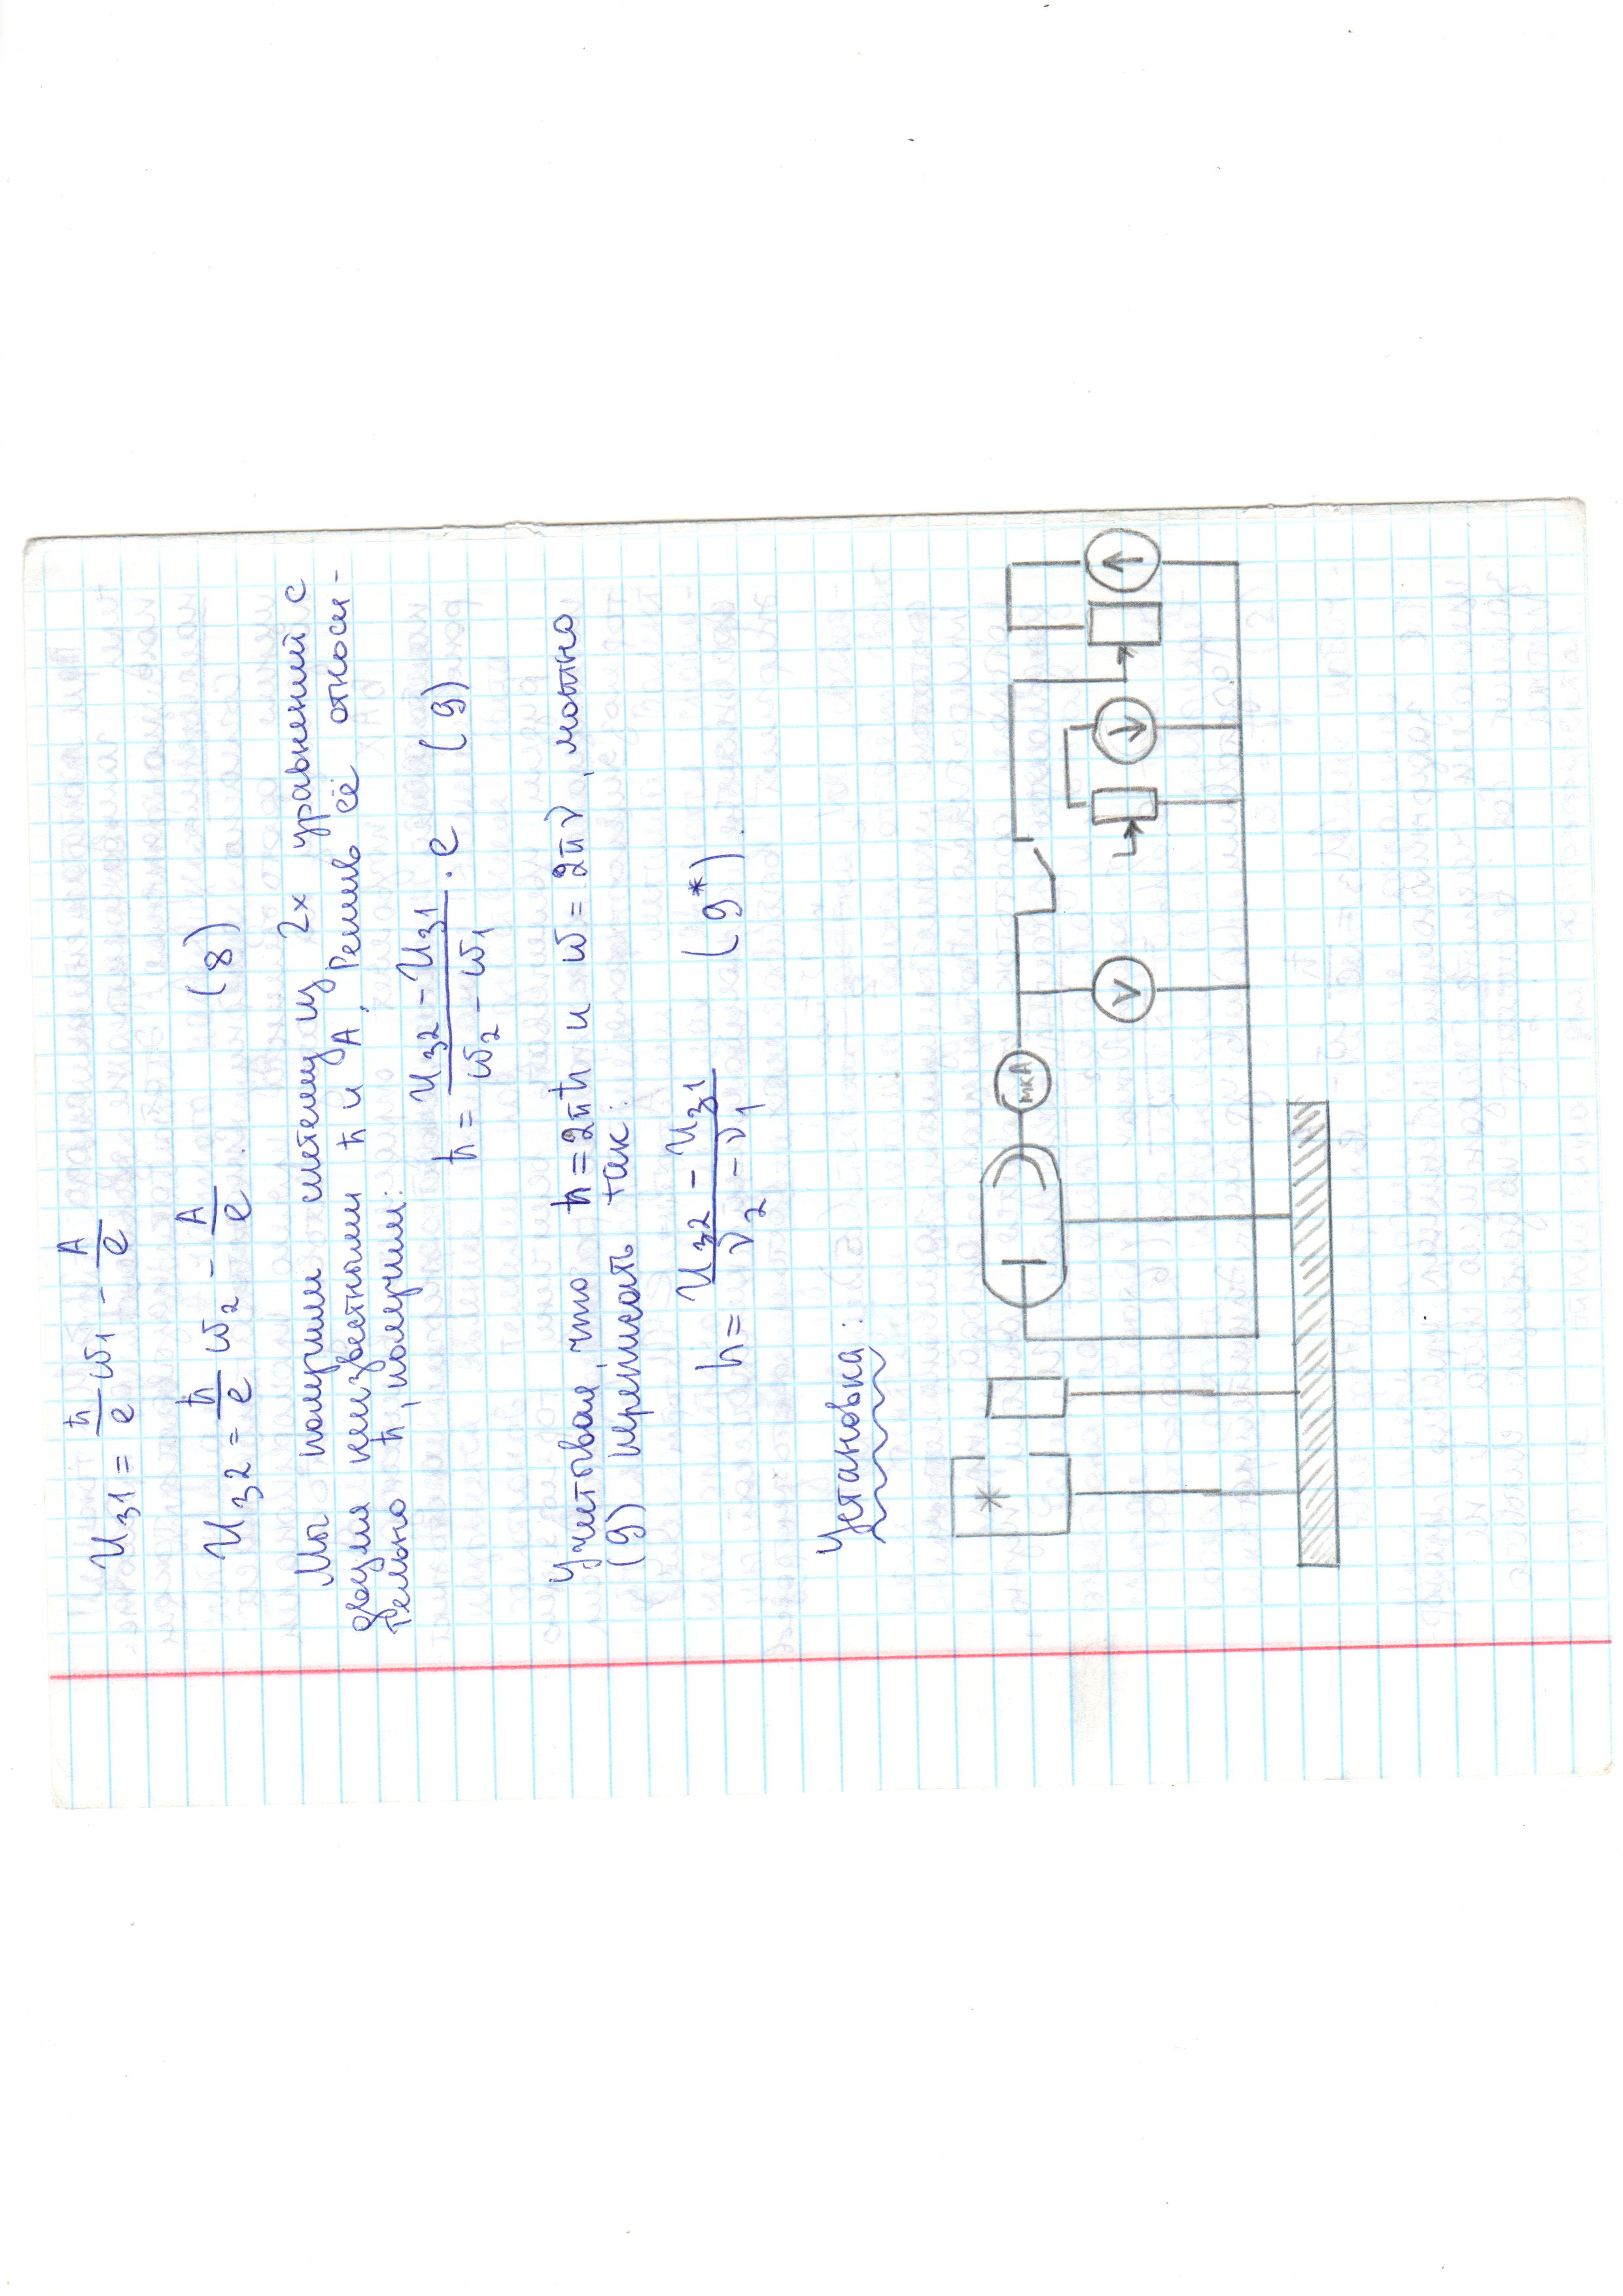 U_з1 = ħ/e ω₁ − A/e
U_з2 = ħ/e ω₂ − A/e . (8)
Мы получили систему из 2х уравнений с
двумя неизвестными ħ и A. Решив её относи-
тельно ħ, получим:
ħ = (U_з2 − U_з1)/(ω₂ − ω₁) · e (9)
Учитывая, что h = 2πħ и ω = 2πν, можно
(9) переписать так:
h = (U_з2 − U_з1)/(ν₂ − ν₁) (9*).
Установка:
мкА
V